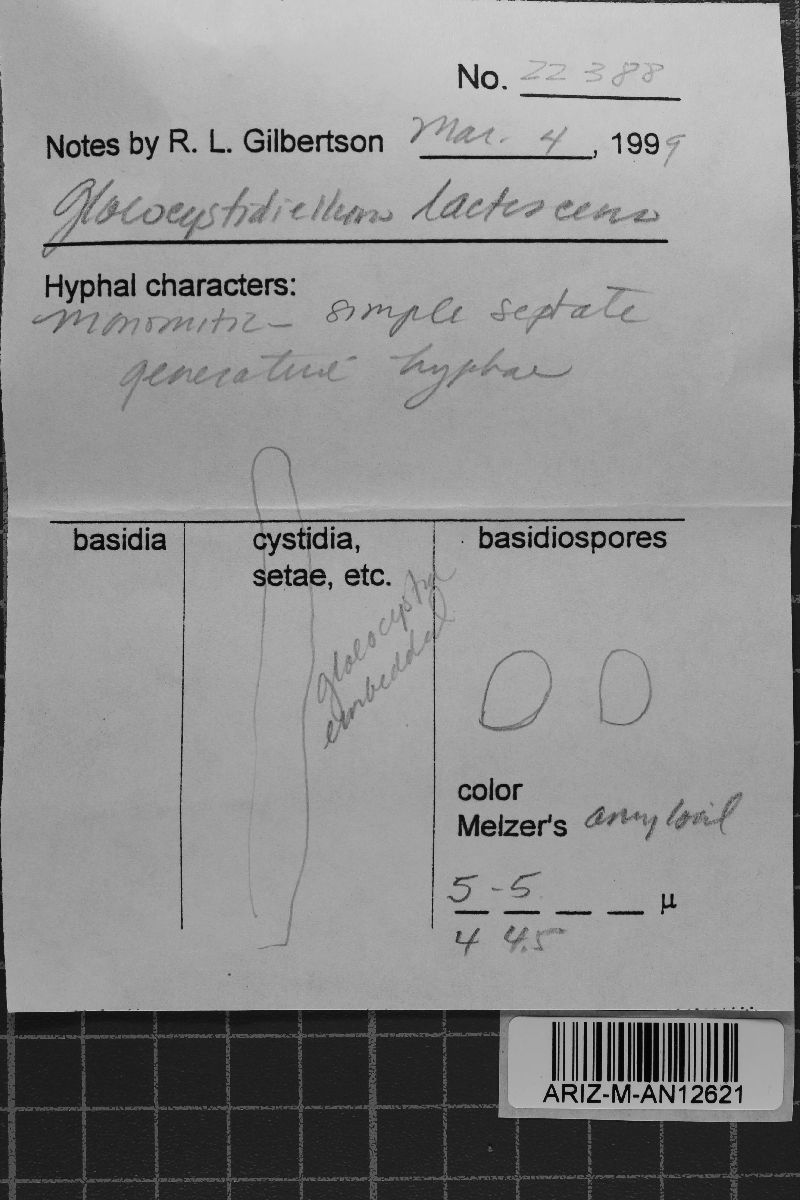 No. 22388
Notes by R. L. Gilbertson Mar. 4, 1999
Gloeocystidiellum lactescens
Hyphal characters:
monomitic - simple septate
generative hyphae
basidia
cystidia,
setae, etc.
gloeocystidia
embedded
basidiospores
color
Melzer's amyloid
5 - 5 µ
4 4.5
ARIZ-M-AN12621